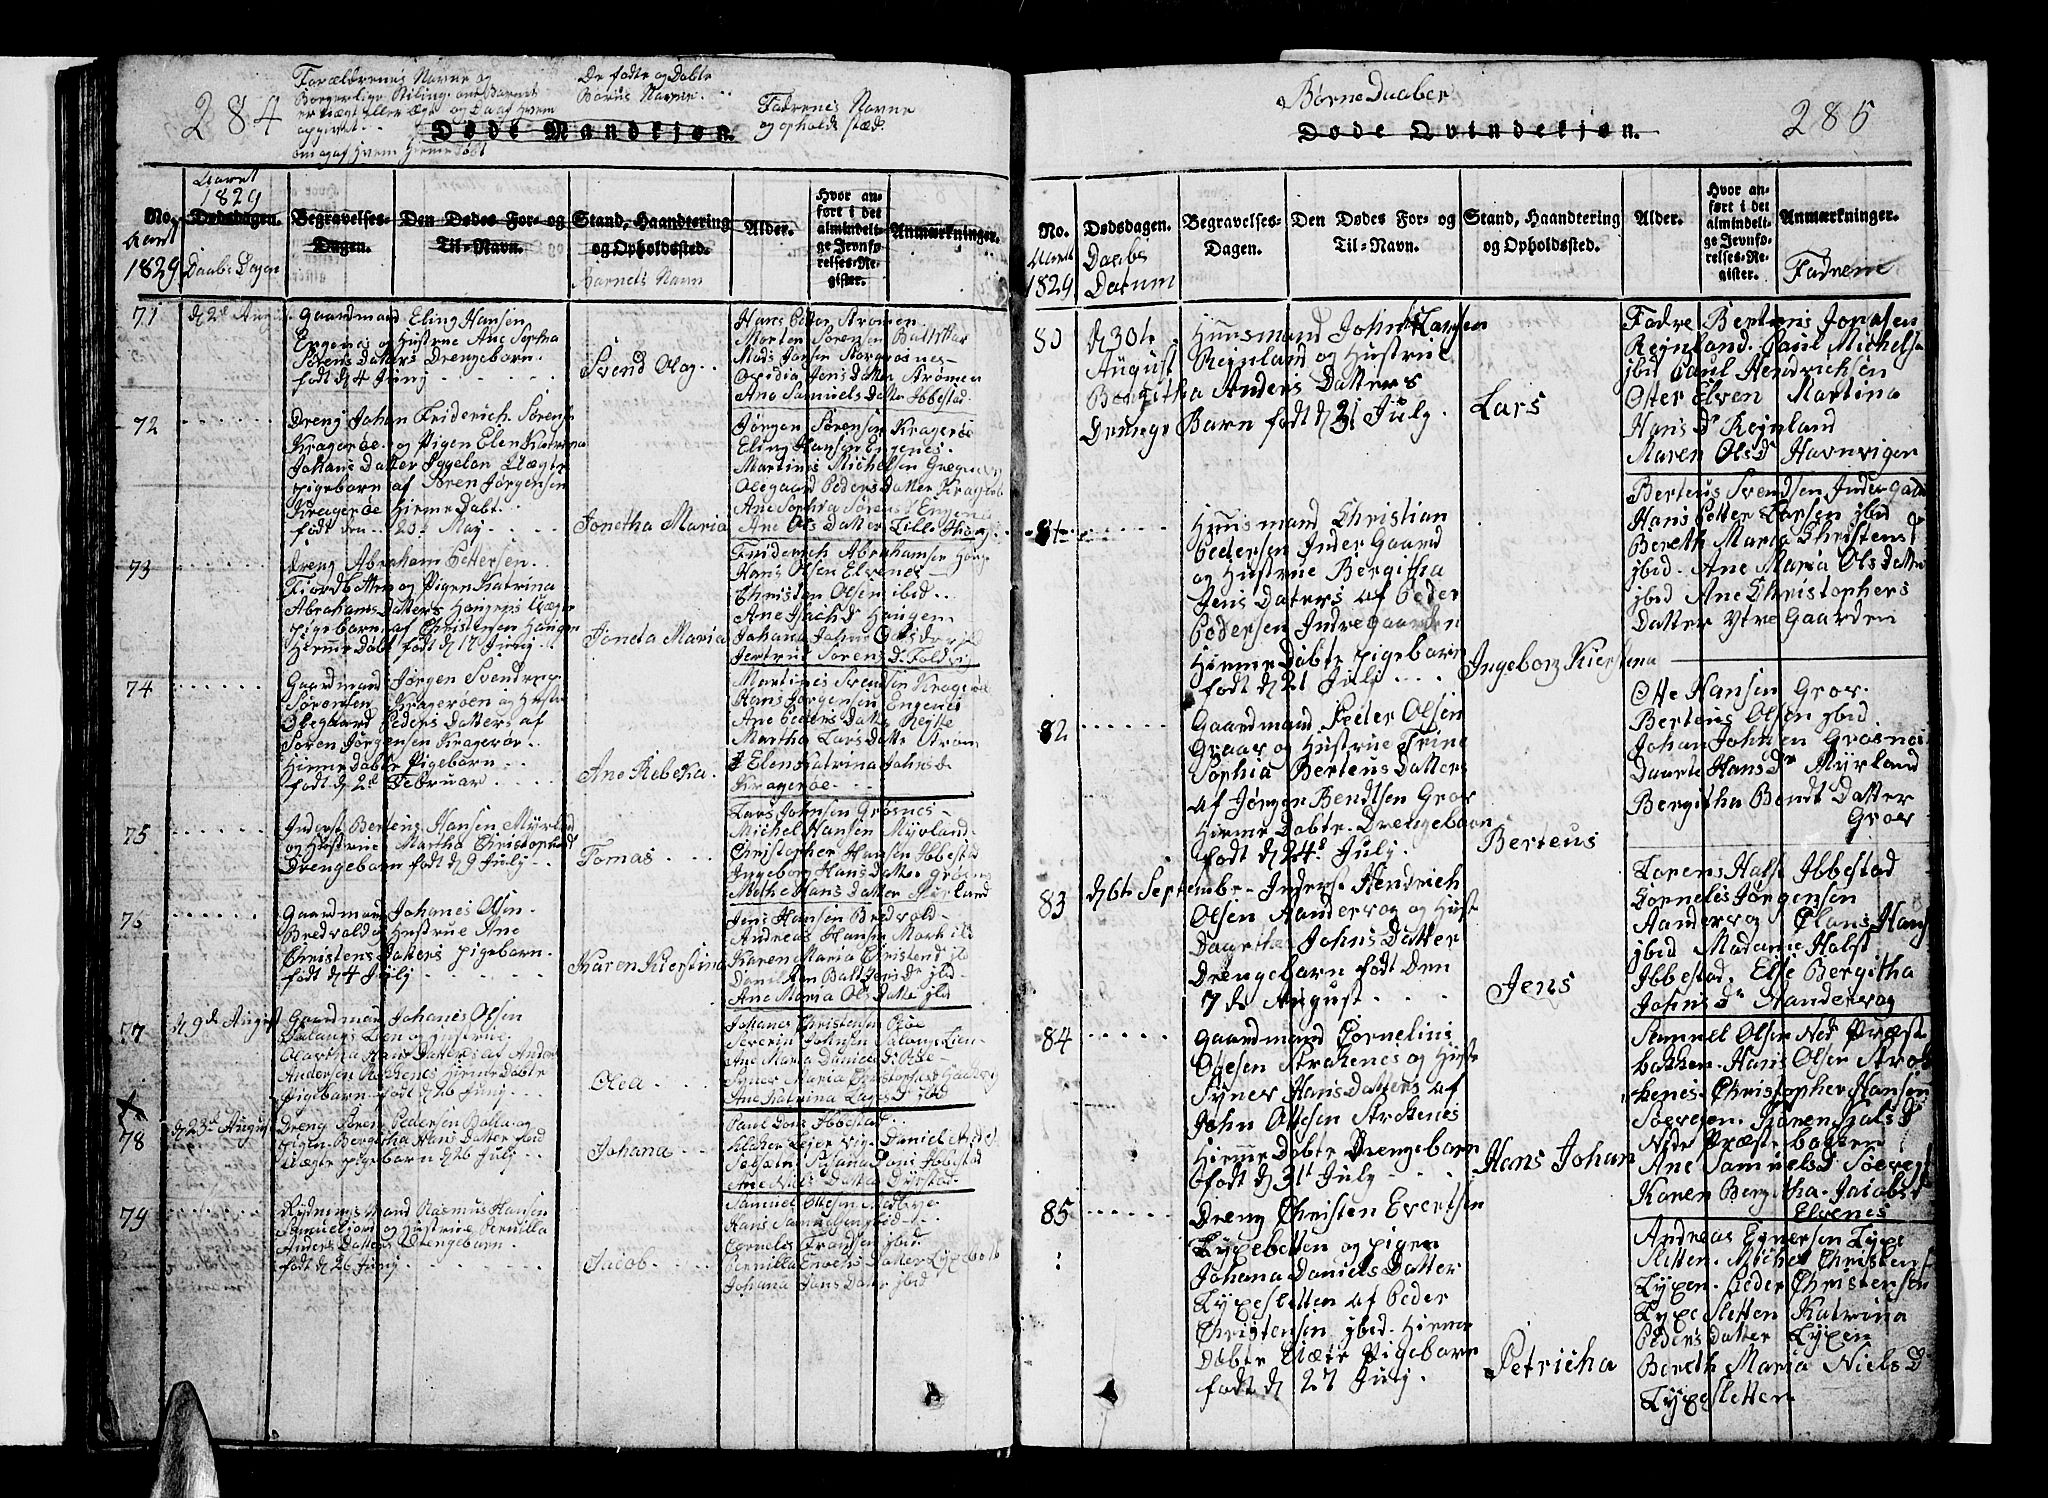 284
Forældrenes Navne og
Borgerlige Stiling, om Barnet
er uægt eller Ægte og Da af Hvem
opgivet
om og af Hvem Hiemedøbt
De fødte og Døbte
Børns Navne
Fadrenes Navne
og opholdsstæd
Døde Mandkjøn.
No.
Aaret
1829
Aaret
1829
Dødsdagen.
Daabs Dage
Begravelses-
Dagen.
Den Dødes For- og
Til-Navn.
Stand, Haandtering
og Opholdssted.
Barnets Navn
Alder.
Hvor an-
ført i det
almindeli-
ge Jevnfø-
relses-Re-
gister.
Anmærkninger.
71
d 2de August
Gaardmand Eling Hansen
Engenes og Hustrue Ane Sophia
Drengebarn
født d 4 Juny
Svend Olay
Hans Petter Strømen
Morten Sørensen
Mads Jonsen Storgrosnes
Ovidia Jens Datter Strømen
Ane Samuels Datter Ibbestad
72
Dreng Johan Friderich Sørens
Kragerøe og Pigen Elen Katrina
Johans Datter
pigebarn af Søren Jørgensen
Kragerøe Hieme Døbt
født den 20de May
Jonetha Maria
Jørgen Sørensen Kragerøe
Eling Hansen Engenes
Martines Michelsen
Olegaard Peders Datter
Ane Sophia Sørens D Engenes
Ane Ols Datter Lille
73
Dreng Abraham Pettersen
Fiordbotten og Pigen Katrina
Abrahams Datters Hangens Uægte
pigebarn af Christensen Hangen
Hieme Døbt født d 17 Juny
Joneta Maria
Friderich Abrahamsen
Hans Olsen Elvenes
Christen Olsen ibid
Ane Isachs D Hangen
Johana
Jertrud Sørens D Foldvig
74
Gaardmand Jørgen Svendrup
Sørensen Kragerøen og Hustrue
Olegaard Peders Datters af
Søren Jørgensen Kragerør
Hieme Døbte Pigebarn
født d 2de Februar
Ane Rebeka
Martines Svendsen Kragerøe
Hans Jørgensen Engenes
Ane Peders Datter
Martha Lars Datter Strøm
Elen Katrina Johns D
Kragerøe
75
Inderst Bertens Hansen Myrland
og Hustrue Martha Christophers D
Drengebarn født d 9 July
Tomas
Lars Johnsen Grøsnes
Michel Hansen Myrland
Christopher Hansen Ibbestad
Ingeborg Hans Datter Grøsnes
Mette Hans Datter Myrland
76
Gaardmand Johanes Olsen
Bredvold og Hustrue Ane
Christens Datters pigebarn
født d 4 July
Karen Kierstina
Jens Hansen Bredvold
Andreas Hansen
Karen Maria Christens D jbd
Ane Maria Ols Datter jbd
77
d 9de August
Gaardmand Johanes Olsen
Salangs Lien og Hustrue
Martha Hans Datters af Anders
Andersen Hieme Døbte
Pigebarn født d 26 Juny
Olea
Johanes Christensen
Severin Johnsen Salangs Lien
Ane Maria Daniels D
Maria Christophers D
Ane Katrina Lars D jbd
78
d 23de August
Dreng Søren Pedersen Bolla og
Pigen Bergitha Hans Datter
Uægte pigebarn d 26 July
Johana
Paul Dons Ibbestad
Daniel
Susana Dons Ibbestad
Ane Niels Datter Dyrstad
79
Rydnings Mand Rasmus Hansen
og Hustrue Pernilla
Anders Datters Drengebarn
født d 26 Juny
Jacob
Samuel Ottesen
Hans Samuelsen jbid
Cornelis Frandsen jbid
Pernilla Enochs Datter
Johana Jans Datter jbid
Børne Daaber
Døde Qvindekjøn.
285
No.
Aaret
1829
Dødsdagen.
Daabs
Datum
Begravelses-
Dagen.
Den Dødes For- og
Til-Navn.
Stand, Haandtering
og Opholdssted.
Alder.
Hvor an-
ført i det
almindeli-
ge Jevnfø-
relses-Re-
gister.
Anmærkninger.
Fadrene
80
d 30te
August
Huusmand John Larsen
Rejnland og Hustrue
Bergitha Anders Datters
Drenge Barn født d 31 July
Lars
Fadre Bertens Jonasen
Rejnland. Paul Michels
jbid Paul Hendrichsen
Øster Elven Martina
Hans D Rejnland
Maren Ols D Havnvigen
81
Huusmand Christian
Pedersen Inder Gaard
og Hustrue Bergitha
Jens Daters af Peder
Pedersen Indregaarden
Hieme Døbte pigebarn
født d 21 July
Ingeborg Kierstena
Berteus Svendsen Inder Gaard
Hans Petter Larsen jbid
Bereth Maria Christens D
jbid. Ane Maria Ols Datter
jbid Ane Christophers
Datter Ytre Gaarden
82
Gaardmand Peter Olsen
Graar og Hustrue Trine
Sophia Berteus Datters
af Jørgen Bendtsen Grov
Hieme Døbte Drengebarn
født d 24de July
Berteus
Otte Hansen Grov.
Berteus Olsen jbid.
Johan Johnsen Grosnes
Daarte Hans Dr Myrland
Bergitha Bendt Datter
Grov
83
d 6te Septembr
Inderst Hendrich
Olsen Aandervog og Hust
Daarthea Johns Datter
Drengebarn født Den
7 de August
Jens
Lorens Halst Ibbestad
Cornelis Jørgensen
Aandervog Clans Hans
jbid Madame Halst
Ibbestad, Else Bergitha
Johns Dr Aandervog
84
Gaardmand Cornelius
Otesen Strakenes og Hust
Synev Hans Datters af
John Ottesen Strakenes
Hieme Døbte Drengebarn
født d 31te July
Hans Johan
Samuel Olsen Ned Præst
bakken. Hans Olsen Strak
henes. Christopher Hansen
Søevegen. Karen
Nedr Præste bakken
Ane Samuels D Søeveg
Karen Bergitha Jacobs D
Elvenes
85
Dreng Christen Evertsen
Lyxebotten og pigen
Johana Daniels Datter
Lyxesletten af Peder
Christensen jbid. Hieme
Døbte Uægte Pigebarn
født d 27 July.
Petricha
Andreas Ejnersen Lyxe
sletten. Michel Christens
Lyxen. Peder Christensen
Lyxe Sletten Katrina
Peders Datter Lyxen
Bereth Maria Niels D
Lyxesletten